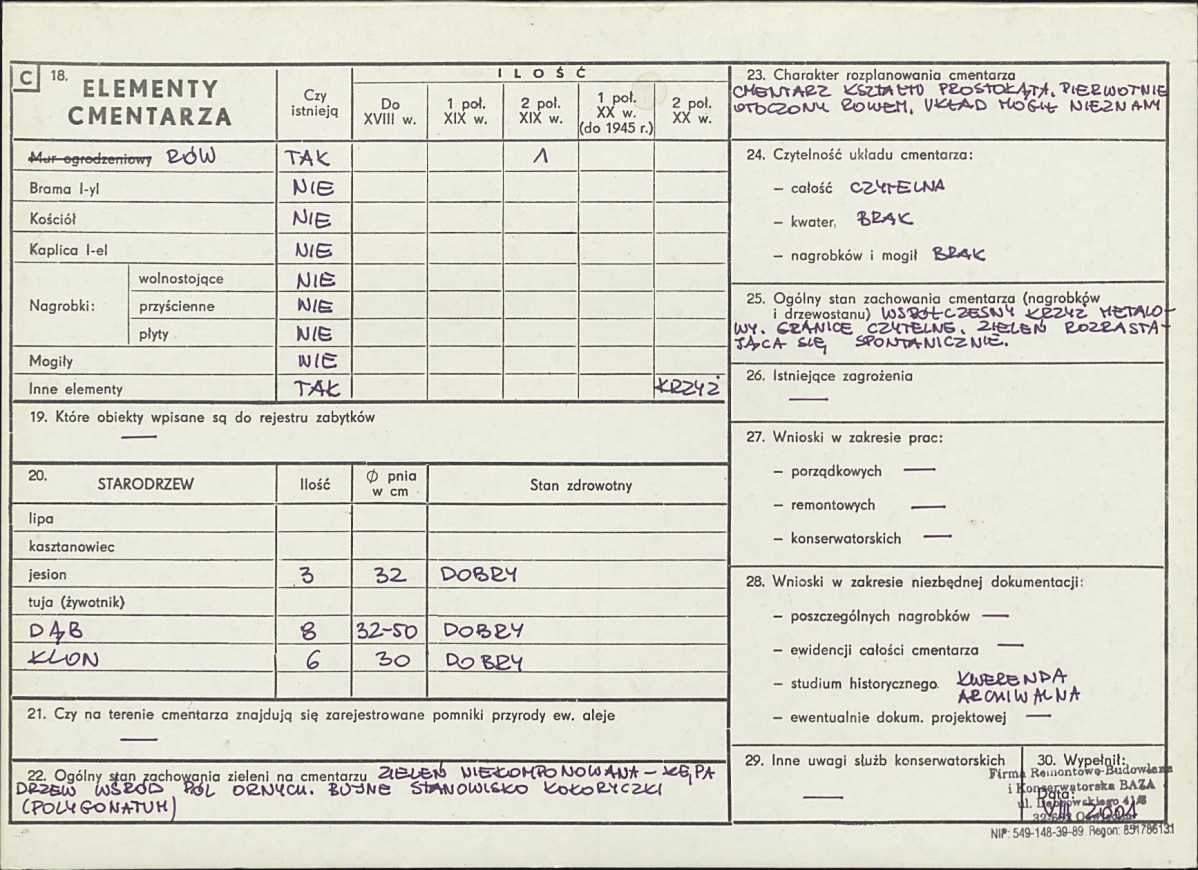 C 18. ELEMENTY CMENTARZA
Czy istnieją
ILOŚĆ
Do XVIII w.
1 poł. XIX w.
2 poł. XIX w.
1 poł. XX w. (do 1945 r.)
2 poł. XX w.
Mur ogrodzeniowy RÓW TAK 1
Brama I-yl NIE
Kościół NIE
Kaplica I-el NIE
Nagrobki:
wolnostojące NIE
przyścienne NIE
płyty NIE
Mogiły NIE
Inne elementy TAK KRZYŻ
19. Które obiekty wpisane są do rejestru zabytków
—
20. STARODRZEW Ilość Ø pnia w cm Stan zdrowotny
lipa
kasztanowiec
jesion 3 32 DOBRY
tuja (żywotnik)
DĄB 8 32-50 DOBRY
KLON 6 30 DOBRY
21. Czy na terenie cmentarza znajdują się zarejestrowane pomniki przyrody ew. aleje
—
22. Ogólny stan zachowania zieleni na cmentarzu ZIELEŃ NIEKOMPONOWANA – KĘPA
DRZEW WŚRÓD PÓL ORNYCH. BUJNE STANOWISKO KOKORYCZKI
(POLYGONATUM)
23. Charakter rozplanowania cmentarza
CMENTARZ KSZTAŁTU PROSTOKĄTA, PIERWOTNIE
OTOCZONY ROWEM, UKŁAD MOGIŁ NIEZNANY
24. Czytelność układu cmentarza:
– całość CZYTELNA
– kwater. BRAK
– nagrobków i mogił BRAK
25. Ogólny stan zachowania cmentarza (nagrobków
i drzewostanu) WSPÓŁCZESNY KRZYŻ METALO-
WY. GRANICE CZYTELNE. ZIELEŃ ROZRASTA-
JĄCA SIĘ SPONTANICZNIE.
26. Istniejące zagrożenia
—
27. Wnioski w zakresie prac:
– porządkowych —
– remontowych —
– konserwatorskich —
28. Wnioski w zakresie niezbędnej dokumentacji:
– poszczególnych nagrobków —
– ewidencji całości cmentarza —
– studium historycznego. KWERENDA
ARCHIWALNA
– ewentualnie dokum. projektowej —
29. Inne uwagi służb konserwatorskich
—
30. Wypełnił:
Firma Remontowo-Budowlana
i Konserwatorska BAZA
Data:
ul. Dąbrowskiego
VIII 2001
NIP: 549-148-39-89 Regon: 851786131